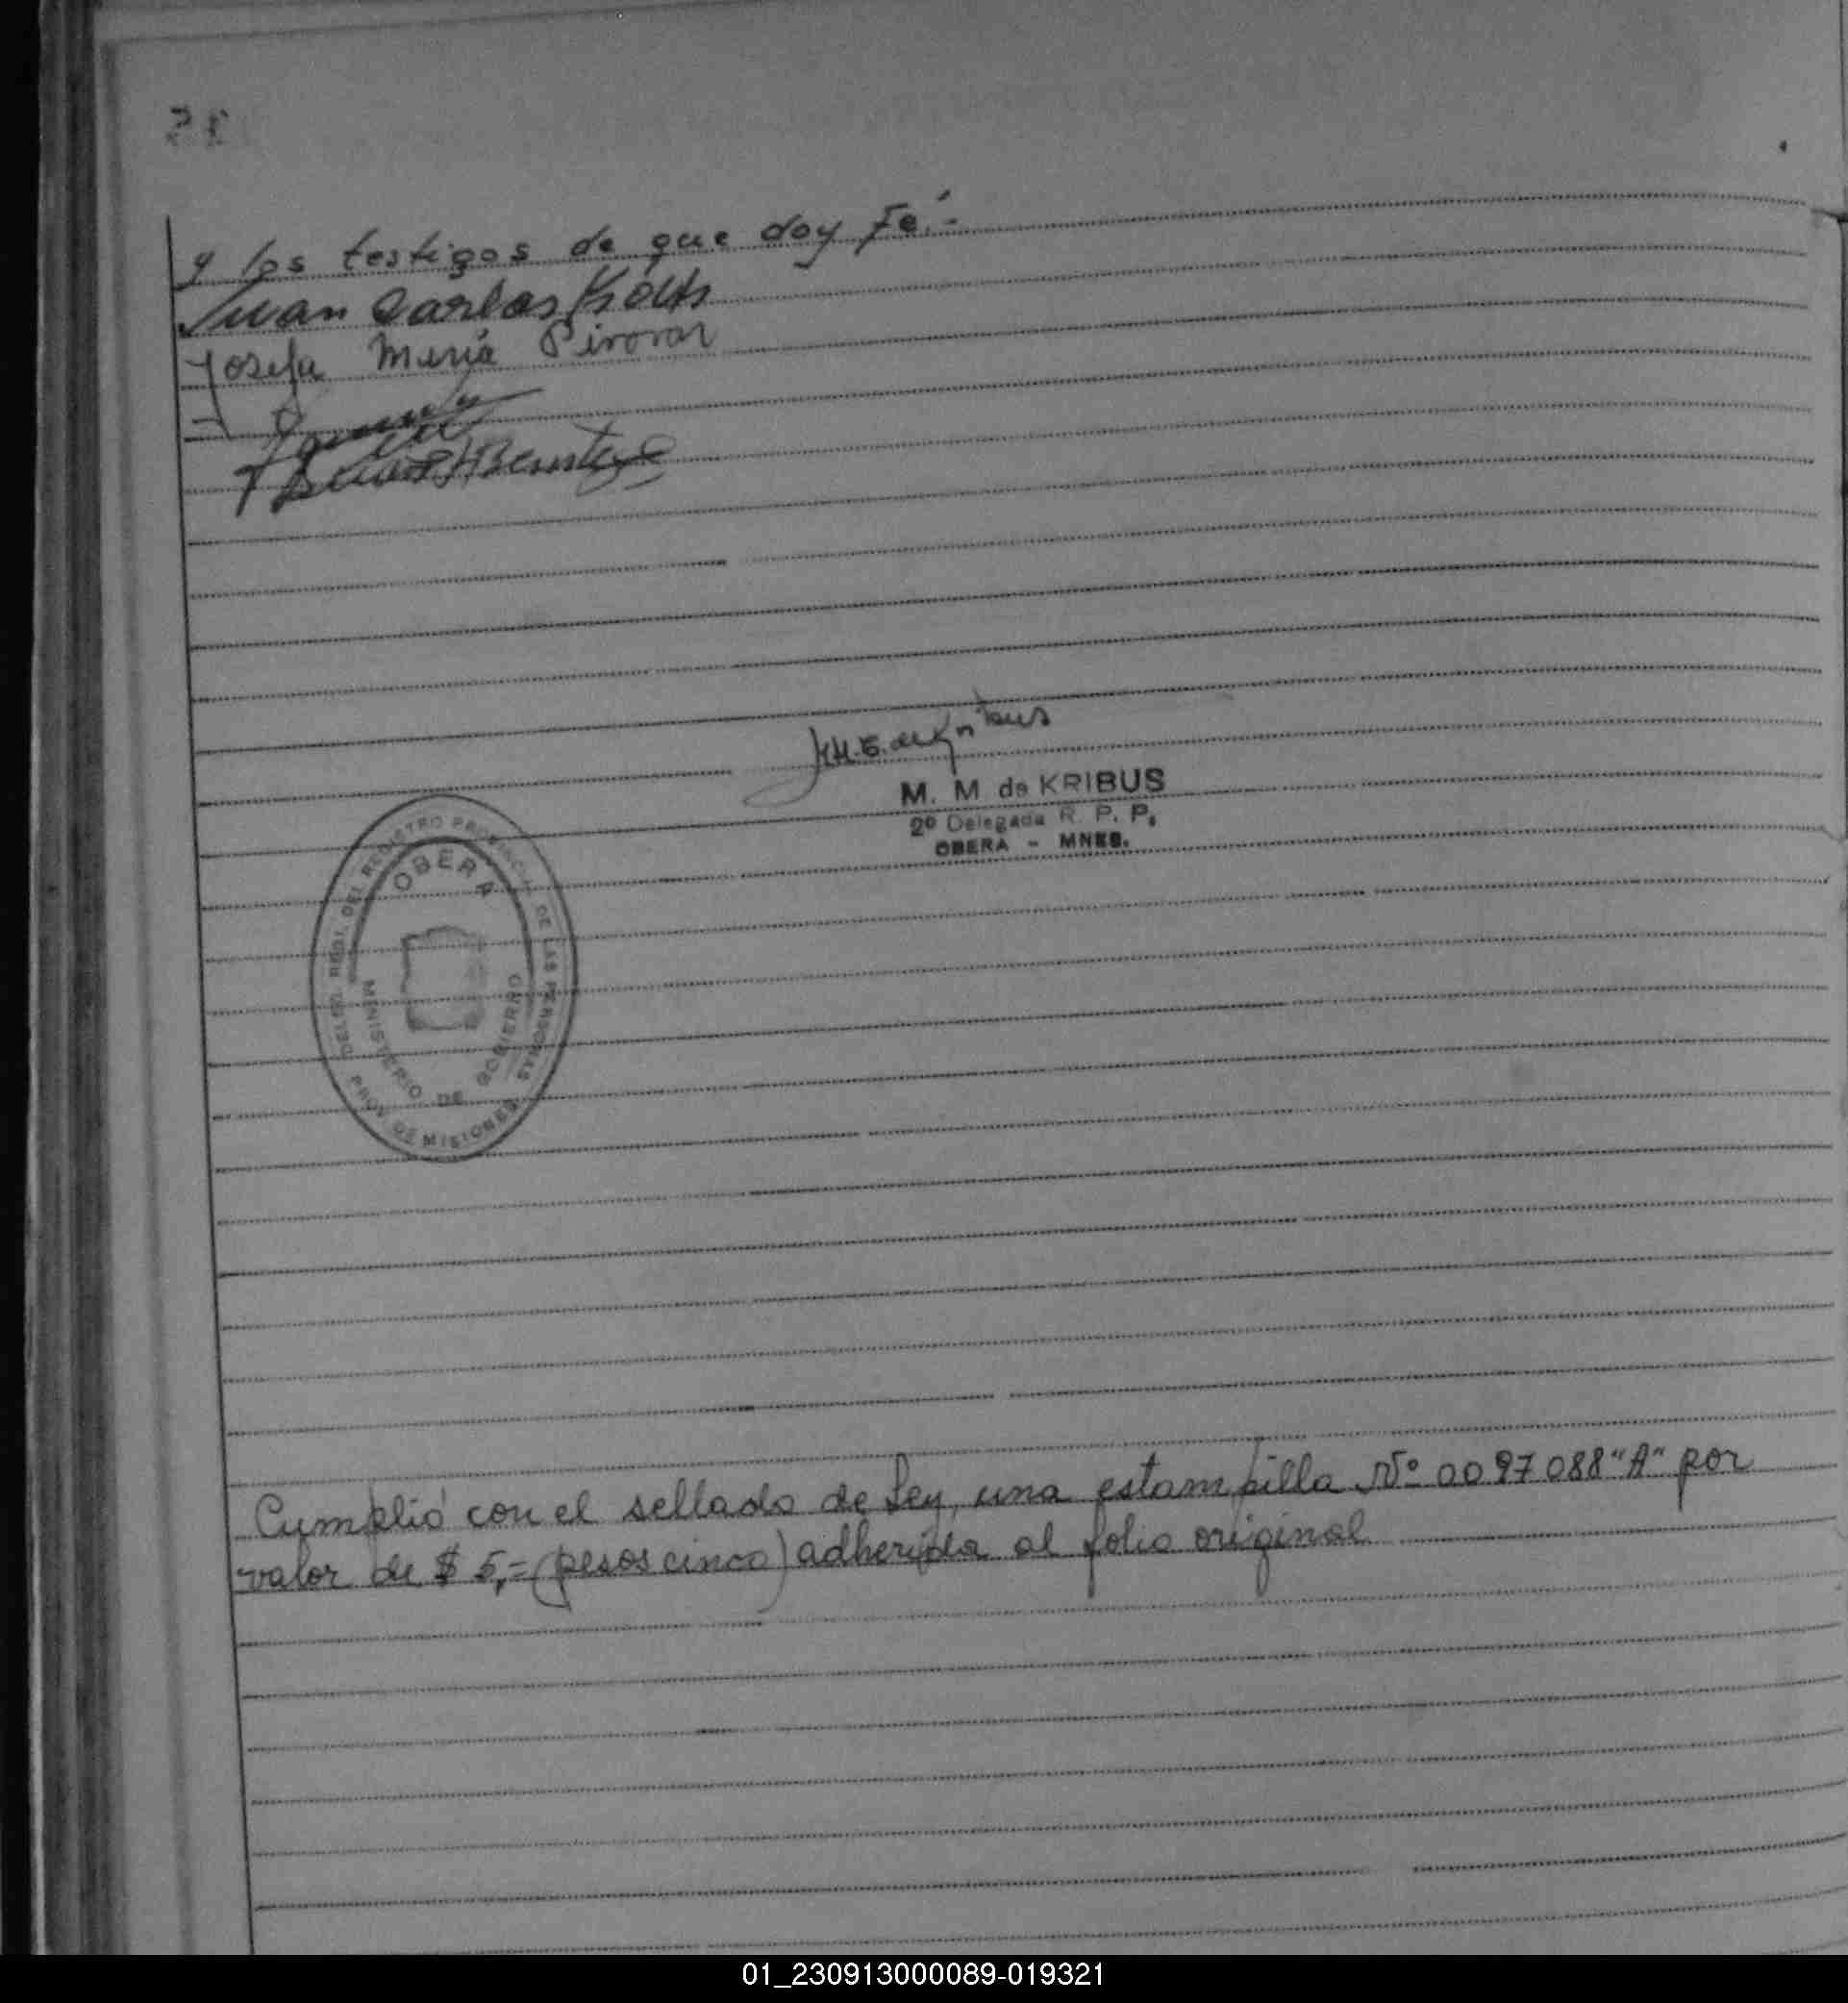 y los testigos de que doy Fé.-
Juan Carlos
Josefa María Pirovar
M. M de KRIBUS
2º Delegada R. P. P.
OBERA - MNES.
DELEG. REGI. DEL REGISTRO PROVINCIAL DE LAS PERSONAS
OBERA
MINISTERIO DE GOBIERNO
PROV. DE MISIONES
Cumplió con el sellado de Ley, una estampilla Nº 0097088 "A" por
valor de $ 5,= (pesos cinco) adherida al folio original
01_230913000089-019321